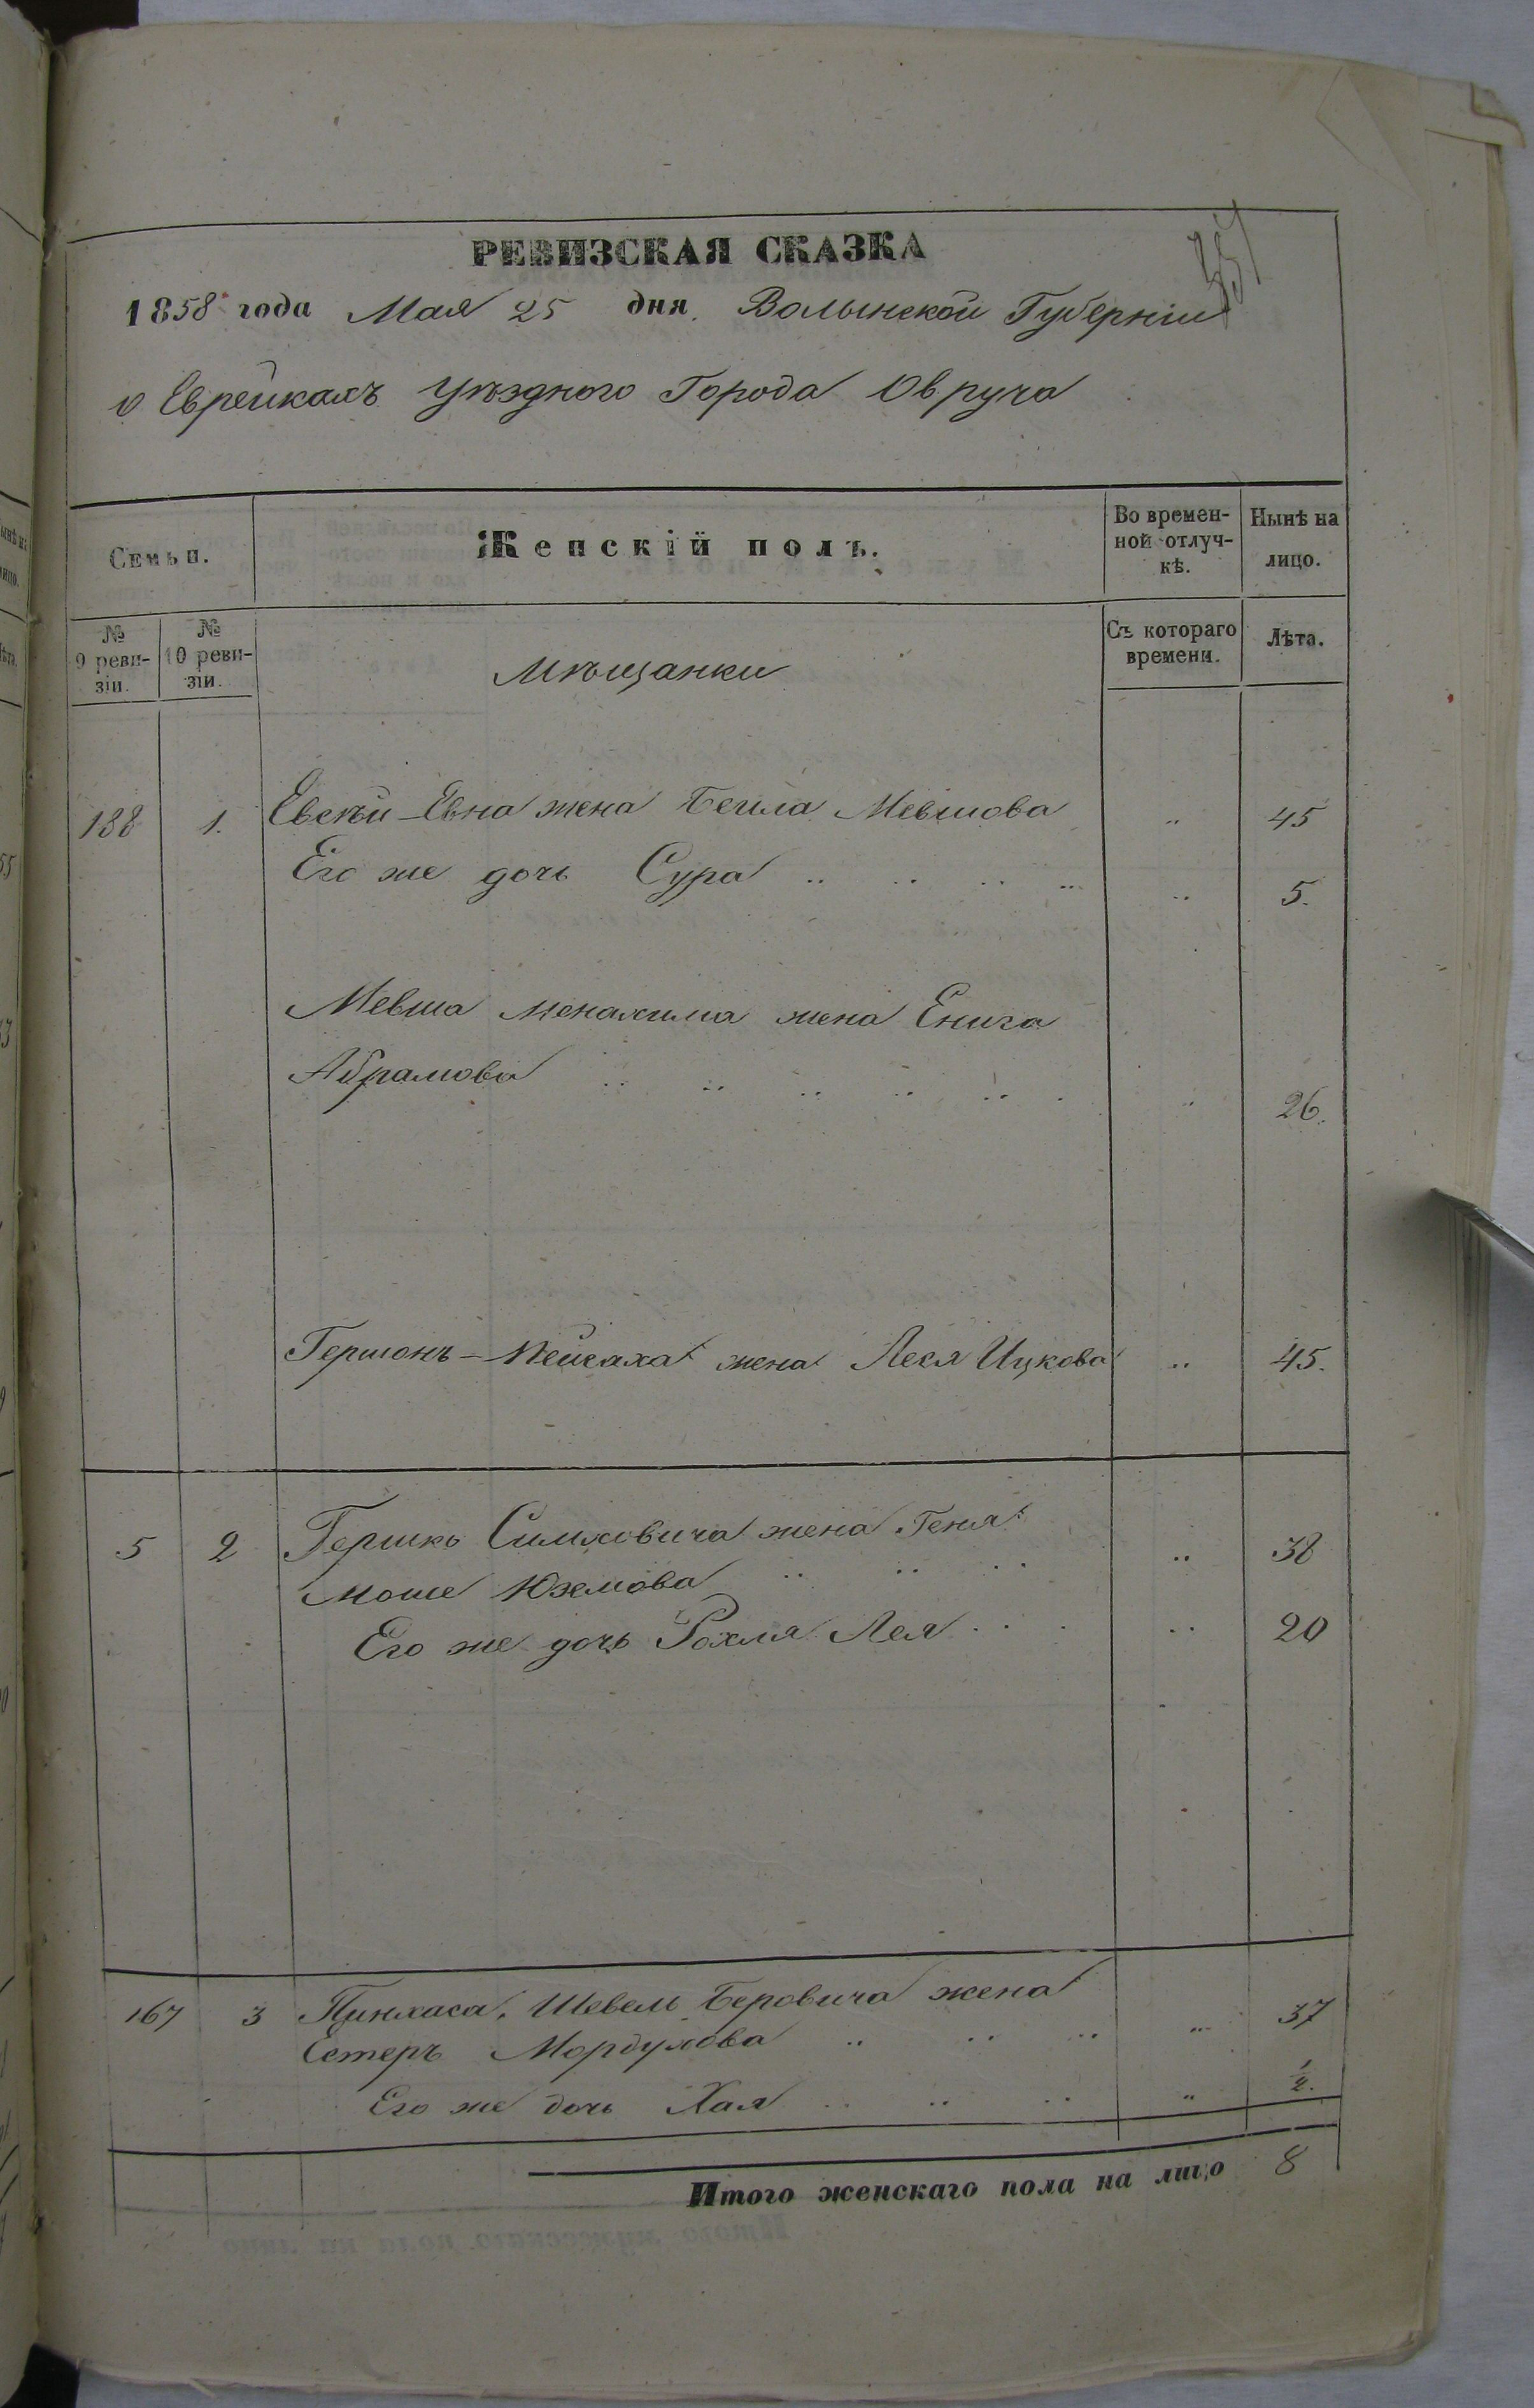 РЕВИЗСКАЯ СКАЗКА
1858 года Мая 25 дня Волынской Губерніи
о Еврейкахъ Уѣзднаго Города Овруча
Семьи.
Женскій полъ.
Во времен-
ной отлуч-
кѣ.
Нынѣ на
лицо.
№
9 реви-
зіи.
№
10 реви-
зіи.
Мѣщанки
Съ котораго
времени.
Лѣта.
188 1. жена Бейла Мевшова " 45
Его же дочь Сура " 5.
Мевша Менахима жена
Абрамова " 26.
Гершонъ-Пейсаха жена Лея Ицкова " 45.
5 2 Гершко Симховича жена Геня " 38
Моше
Его же дочь Рохля Лея " 20
167 3 Пинхаса, Шевель Беровича жена
Естеръ Мордухова " 37
Его же дочь Хая " 1/2.
Итого женскаго пола на лицо 8